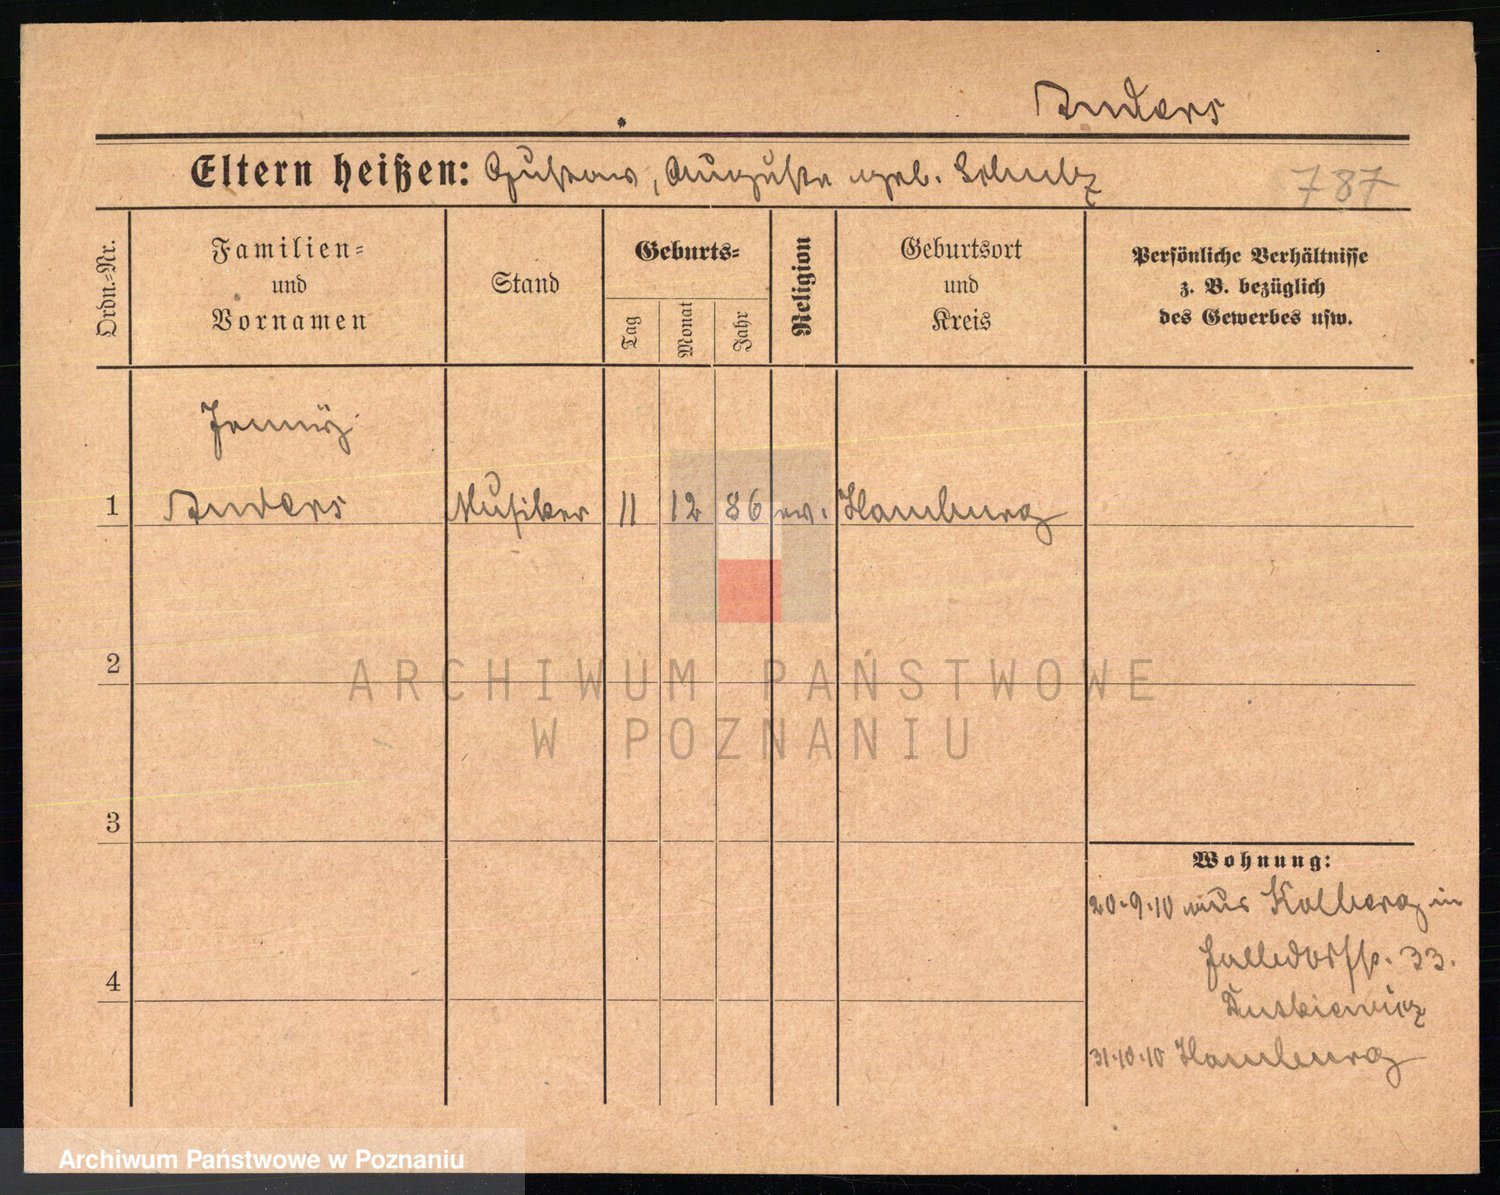 Anders
Eltern heißen: Gustav, Auguste geb. Schulz
787
Ordn.-Nr.
Familien-
und
Vornamen
Stand
Geburts-
Tag
Monat
Jahr
Religion
Geburtsort
und
Kreis
Persönliche Verhältnisse
z. B. bezüglich
des Gewerbes usw.
1
Anders
Musiker
11
12
86
ev.
Hamburg
2
ARCHIWUM PAŃSTWOWE
W POZNANIU
3
Wohnung:
20.9.10 aus Kolberg in
33.
4
31.10.10 Hamburg
Archiwum Państwowe w Poznaniu